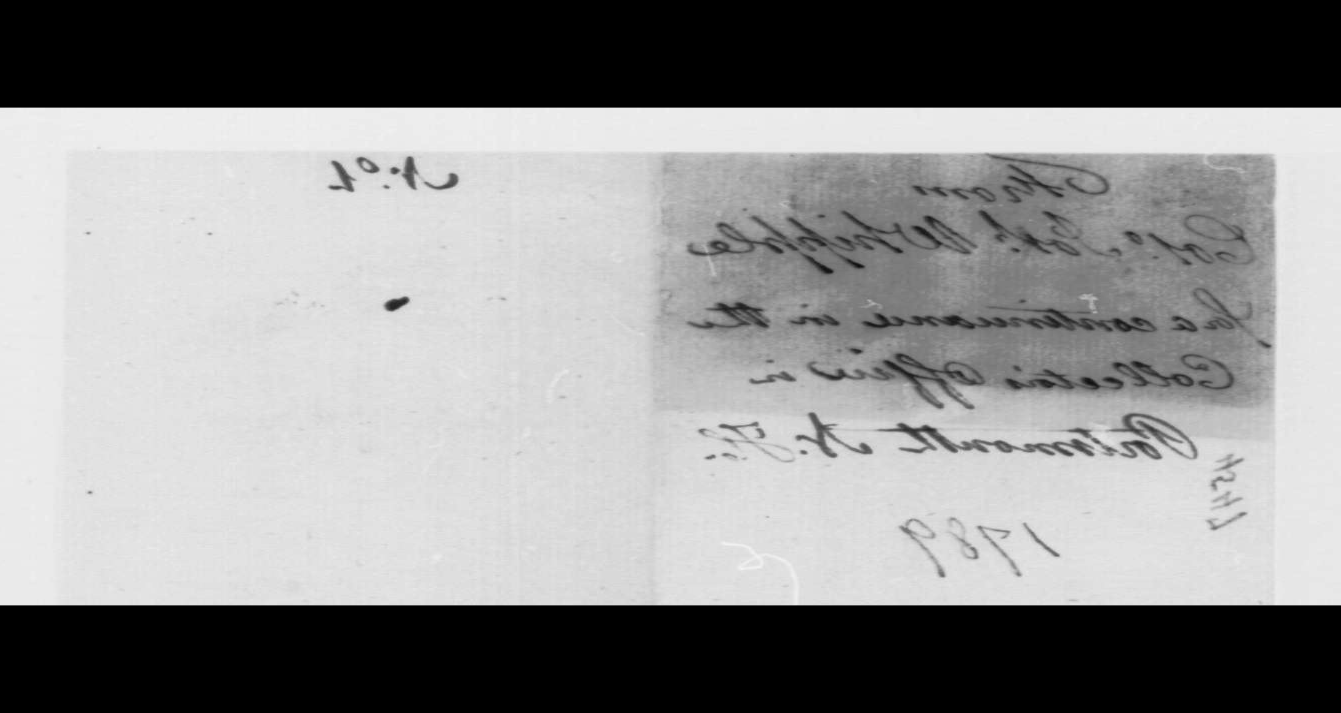 From
Colo. Jos. Whipple
for a continuance in the
Collectors Office in
Portsmouth N. H.
1789
No. 1